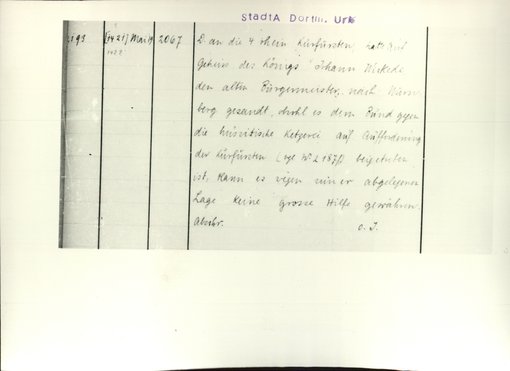 StadtA Dortm. Urk
2193 [1421] Mai 19 2067 D. an die 4 rhein Kurfürsten, hat auf
1422? Geheiss des Königs Johann Wickede
den alten Bürgermeister nach Nürn-
berg gesandt, obwohl es dem Bund gegen
die husitische Ketzerei auf Aufforderung
der Kurfürsten (vgl. Nr. 2187) beigetreten
ist, kann es wegen seiner abgelegenen
Lage keine grosse Hilfe gewähren.
Abschr. o. J.